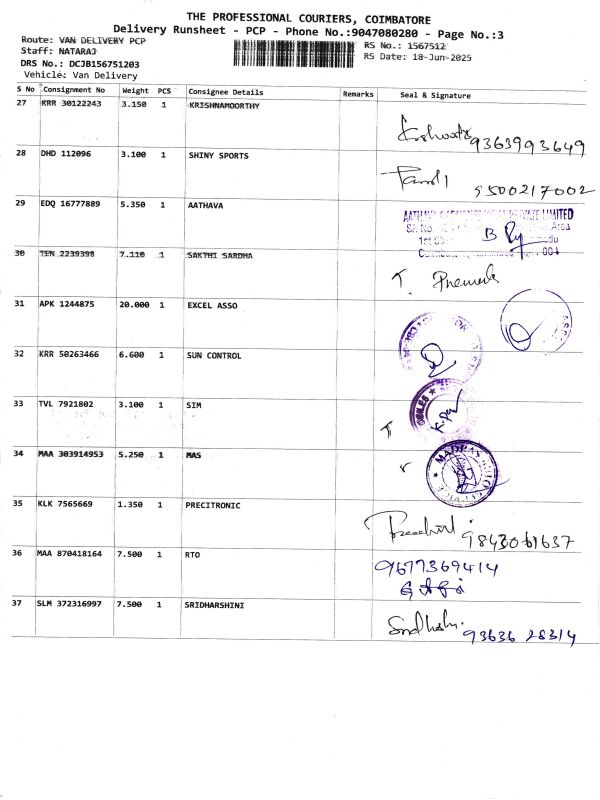 THE PROFESSIONAL COURIERS, COIMBATORE
Delivery Runsheet - PCP - Phone No.:9047080280 - Page No.:3
Route: VAN DELIVERY PCP
RS No.: 1567512
Staff: NATARAJ
RS Date: 18-Jun-2025
DRS No.: DCJB156751203
Vehicle: Van Delivery
S No Consignment No Weight PCS Consignee Details Remarks Seal & Signature
27 KRR 30122243 3.150 1 KRISHNAMOORTHY
9363993649
28 DHD 112096 3.100 1 SHINY SPORTS
9500217002
29 EDQ 16777889 5.350 1 AATHAVA
LIMITED
Area
1st
30 TEN 2239398 7.110 1 SAKTHI SARDHA
T. Premerla
31 APK 1244875 20.000 1 EXCEL ASSO
32 KRR 50263466 6.600 1 SUN CONTROL
33 TVL 7921802 3.100 1 SIM
34 MAA 303914953 5.250 1 MAS
MADRAS
35 KLK 7565669 1.350 1 PRECITRONIC
9843061637
36 MAA 870418164 7.500 1 RTO
9677369414
37 SLM 372316997 7.500 1 SRIDHARSHINI
93636 28314